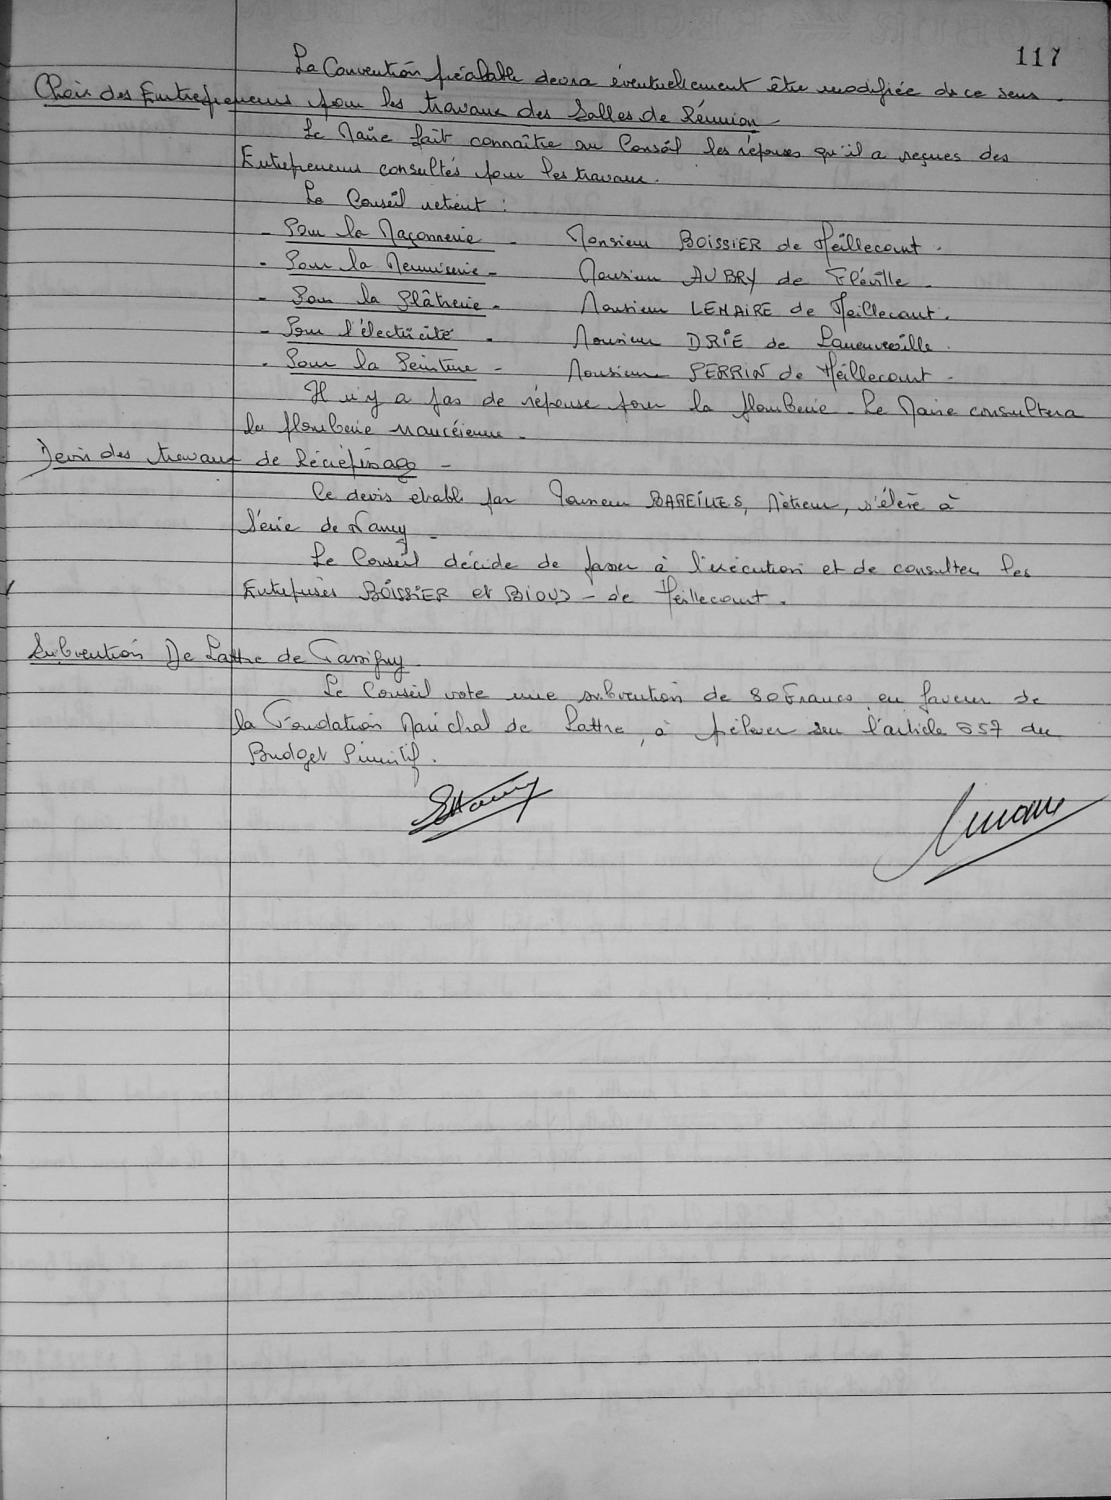 117
La Convention préalable devra éventuellement être modifiée de ce sens.
Choix des Entrepreneurs pour les travaux des Salles de Réunion -
Le Maire fait connaître au Conseil les réponses qu'il a reçues des
Entrepreneurs consultés pour les travaux.
Le Conseil retient :
- Pour la Maçonnerie - Monsieur BOISSIER de Heillecourt.
- Pour la Menuiserie - Monsieur AUBRY de Fléville -
- Pour la Plâtrerie - Monsieur LEMAIRE de Heillecourt.
- Pour l'électricité - Monsieur DRIE de Laneuveville.
- Pour la Peinture - Monsieur PERRIN de Heillecourt -
Il n'y a pas de réponse pour la plomberie - Le Maire consultera
la plomberie nancéienne -
Devis des travaux de Récrépissage -
Ce devis établi par Monsieur BAREILLES, Métreur, s'élève à
Série de Nancy -
Le Conseil décide de passer à l'exécution et de consulter les
Entreprises BOISSIER et - de Heillecourt.
Subvention De Lattre de Tassigny
Le Conseil vote une subvention de 80 Francs en faveur de
la Fondation Maréchal de Lattre, à prélever sur l'article 657 du
Budget Primitif.